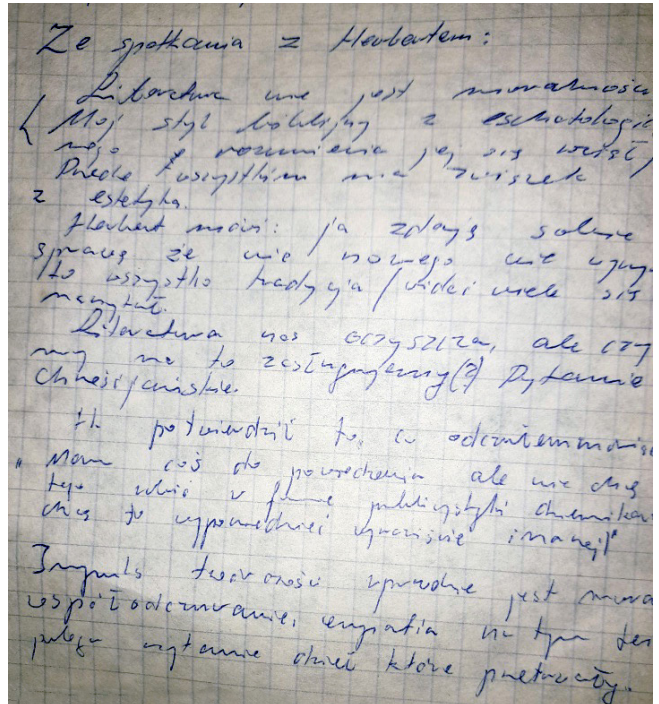 Ze spotkania z Herbertem:
Literatura nie jest moralnością
Mój styl biblijny z eschatologii
mego rozumienia jej się wziął,
Przede wszystkim ma związek
z estetyką.
Herbert mówi: ja zdaję sobie
sprawę że nic nowego nie
to wszystko tradycja / wiele się
Literatura nas oczyszcza, ale czy
my na to zasługujemy(?) Pytanie
chrześcijańskie.
H. potwierdził to, co
"Mam coś do powiedzenia ale nie chcę
tego robić w formie publicystyki
chcę to wypowiedzieć inaczej"
Impuls twórczości wprawdzie jest
współodczuwanie, empatia na tym
polega czytanie dzieł które przetrwały.